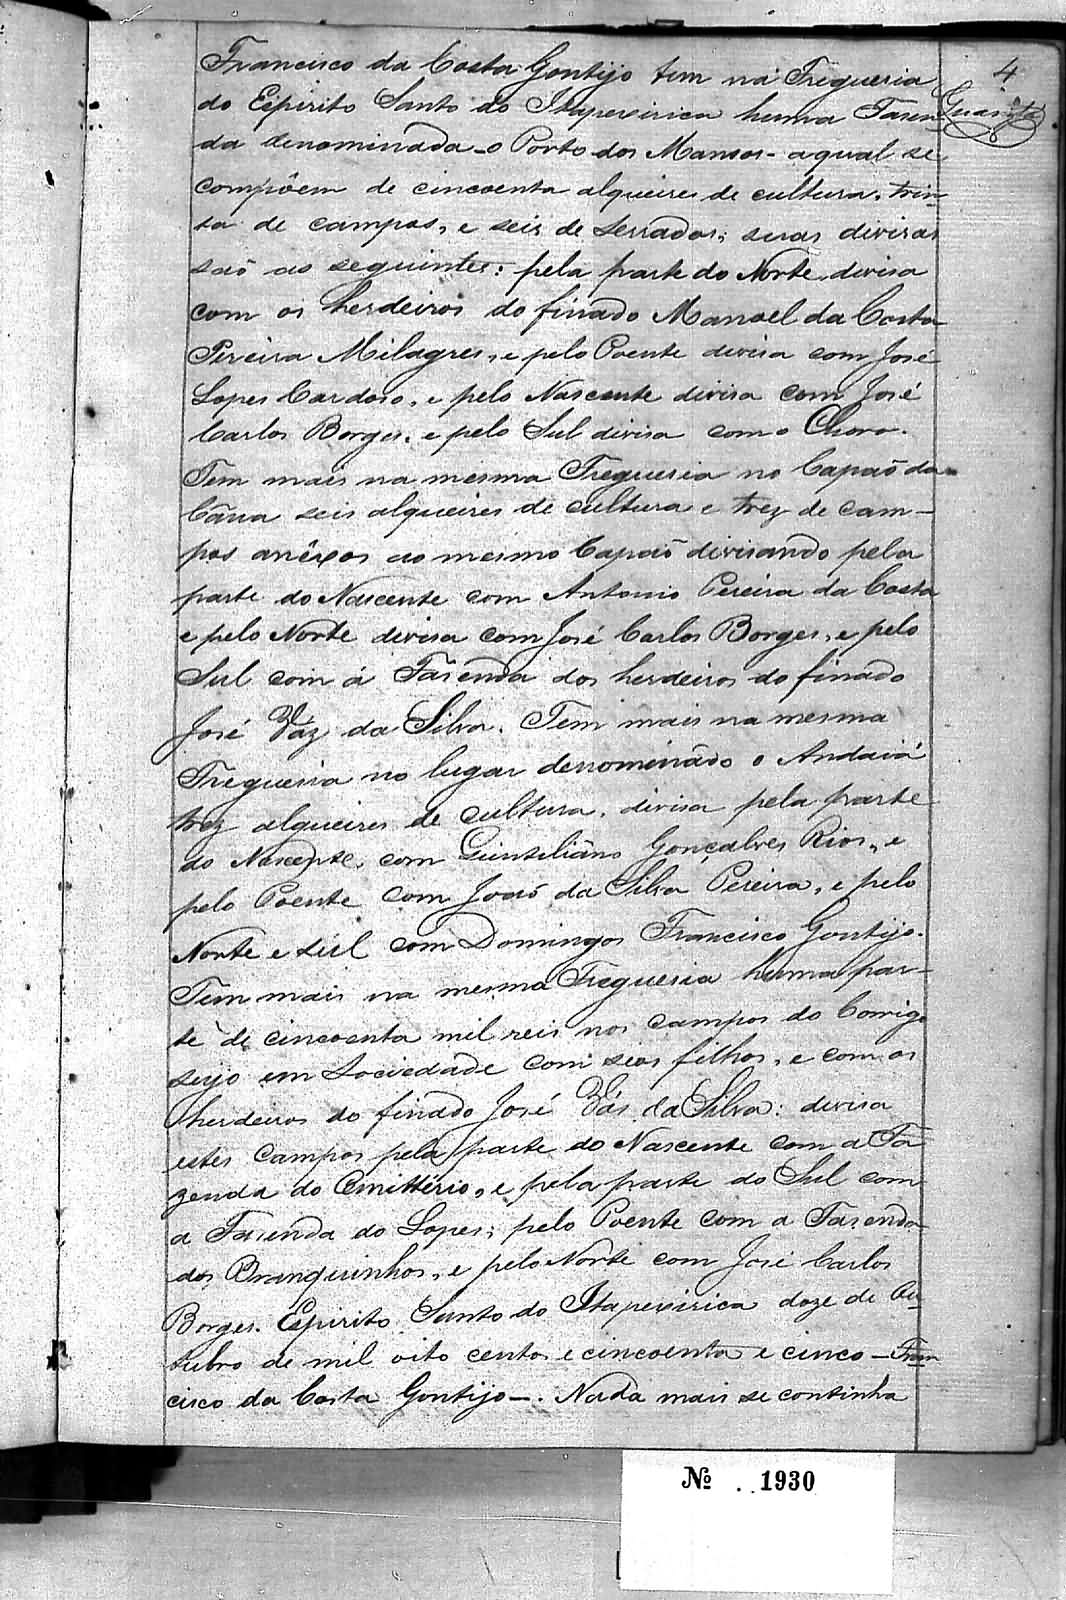 4
Francisco da Costa Gontijo tem na Freguesia
do Espirito Santo do Itapexirica huma Fasen-
da denominada - o Porto dos Mansos - a qual se
compôem de cincoenta alqueires de cultura, trin-
ta de campos, e seis de serrados; suas divisas
saõ as seguintes: pela parte do Norte divisa
com os herdeiros do finado Manoel da Costa
Pereira Milagres, e pelo Poente divisa com José
Lopes Cardoso, e pelo Nascente divisa com José
Carlos Borges, e pelo Sul divisa com o Choro.
Tem mais na mesma Freguesia no Capaõ da
Câna seis alqueires de cultura e trez de cam-
pos anêxos ao mesmo Capaõ divisando pela
parte do Nascente com Antonio Pereira da Costa
e pelo Norte divisa com José Carlos Borges, e pelo
Sul com á Fasenda dos herdeiros do finado
José Váz da Silva. Tem mais na mesma
Freguesia no lugar denominado o Andaiá
trez alqueires de cultura, divisa pela parte
do Nascente, com Quintiliâno Gonçalves Rios, e
pelo Poente com Joaõ da Silva Pereira, e pelo
Norte e súl com Domingos Francisco Gontijo.
Tem mais na mesma Freguesia huma par-
te de cincoenta mil reis nos campos do Corrigo
sujo em Sociedade com seos filhos, e com os
herdeiros do finado José Vás da Silva: divisa
estes Campos pela parte do Nascente com a Fa
zenda do Cmittério, e pela parte do Sul com
a Fasenda do Lopes; pelo Poente com a Fasenda
dos Branquinhos, e pelo Norte com José Carlos
Borges. Espirito Santo do Itapexirica doze de Ou-
tubro de mil oito centos e cincoenta e cinco - Fran
cisco da Costa Gontijo -. Nada mais se continha
Nº 1930